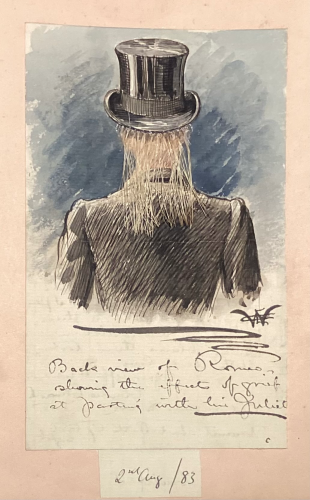 Back view of Romeo,
showing the effect of grief
at parting with his Juliet
c
2nd Aug /83